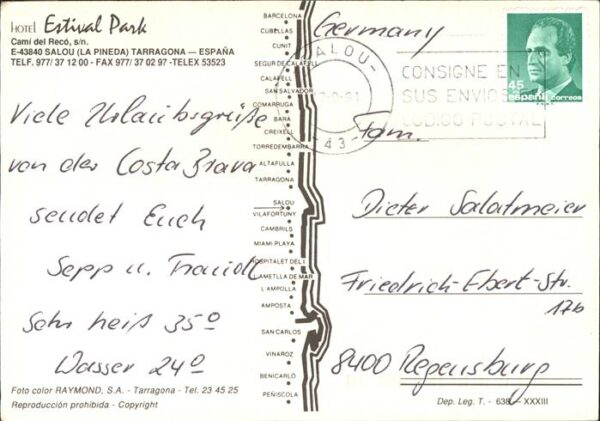 HOTEL Estival Park
Camí del Recó, s/n.
E-43840 SALOU (LA PINEDA) TARRAGONA — ESPAÑA
TELF. 977/ 37 12 00 - FAX 977/ 37 02 97 -TELEX 53523
Viele Urlaubsgrüße
von der Costa Brava
sendet Euch
Sepp u. Traudl
Sehr heiß 35º
Wasser 24º
Foto color RAYMOND, S.A. - Tarragona - Tel. 23 45 25
Reproducción prohibida - Copyright
BARCELONA
CUBELLAS
CUNIT
SEGUR DE CALAFELL
CALAFELL
SAN SALVADOR
COMARRUGA
BARA
CREIXELL
TORREDEMBARRA
ALTAFULLA
TARRAGONA
SALOU
VILAFORTUNY
CAMBRILS
MIAMI PLAYA
HOSPITALET DEL I.
L'AMETLLA DE MAR
L'AMPOLLA
AMPOSTA
SAN CARLOS
VINAROZ
BENICARLÓ
PEÑISCOLA
Germany
SALOU
-43-
CONSIGNE EN
SUS ENVIOS
CODIGO POSTAL
45
españa correos
Fam.
Dieter Salatmeier
Friedrich-Ebert-Str.
17b
8400 Regensburg
Dep. Leg. T. - 638 — XXXIII